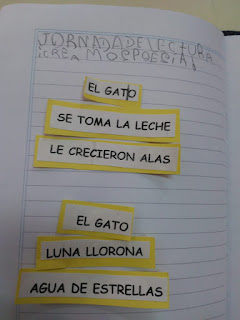 JORNADA DE LECTURA
¡CREA MOS POESIA!
EL GATO
SE TOMA LA LECHE
LE CRECIERON ALAS
EL GATO
LUNA LLORONA
AGUA DE ESTRELLAS